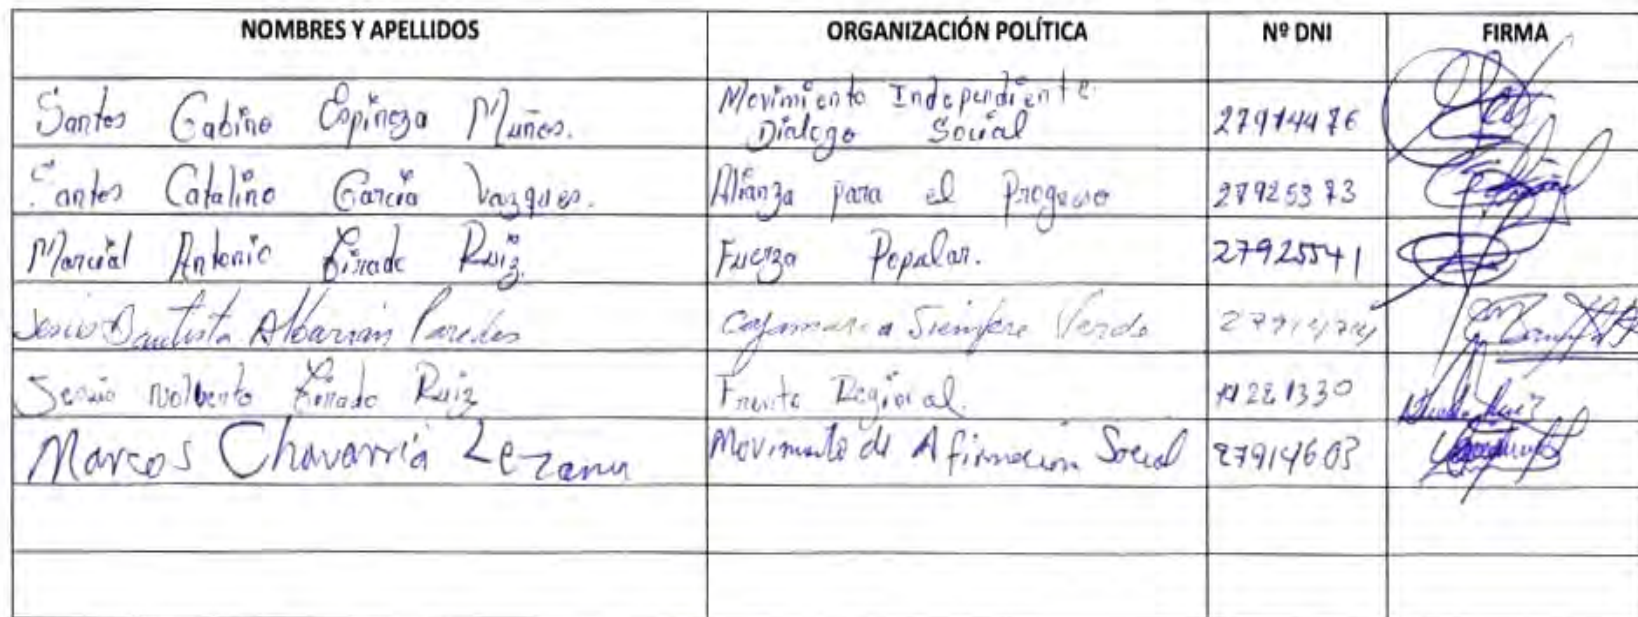 NOMBRES Y APELLIDOS ORGANIZACIÓN POLÍTICA Nº DNI FIRMA
Santos Gabino Espinoza Muños. Movimiento Independiente Dialogo Social 27914476
Santos Catalino Garcia Vazques. Alianza para el Progreso 27925373
Marcial Antonio Tirado Ruiz. Fuerza Popular. 27925541
Jesús Bautista Albarran Paredes Cajamarca Siempre Verde
Tirado Ruiz Frente Regional.
Marcos Chavarria Lezama Movimiento de Afirmacion Social 27914603